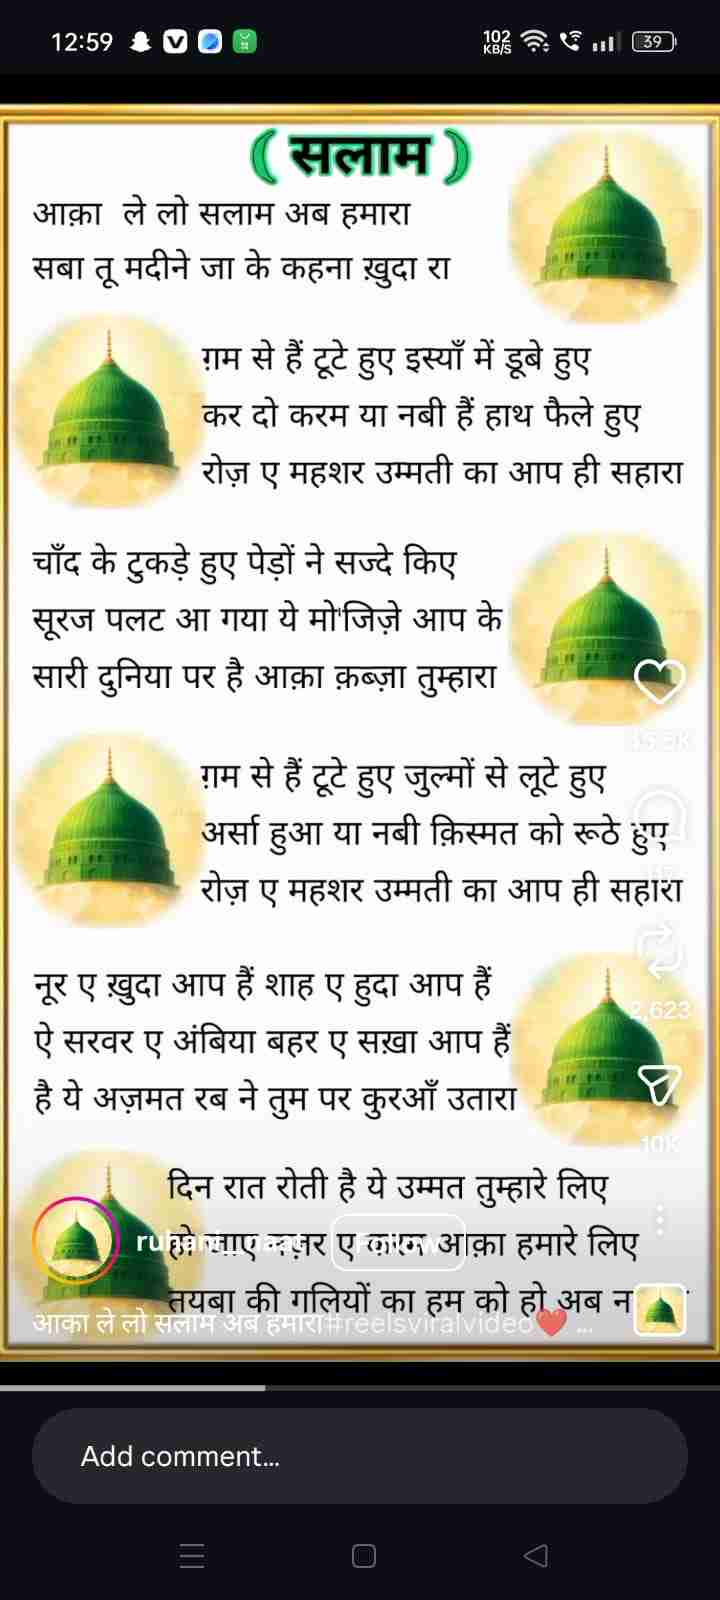 12:59
102 KB/S
39
(सलाम)
आक़ा ले लो सलाम अब हमारा
सबा तू मदीने जा के कहना ख़ुदा रा
ग़म से हैं टूटे हुए इस्याँ में डूबे हुए
कर दो करम या नबी हैं हाथ फैले हुए
रोज़ ए महशर उम्मती का आप ही सहारा
चाँद के टुकड़े हुए पेड़ों ने सज्दे किए
सूरज पलट आ गया ये मो'जिज़े आप के
सारी दुनिया पर है आक़ा क़ब्ज़ा तुम्हारा
ग़म से हैं टूटे हुए जुल्मों से लूटे हुए
अर्सा हुआ या नबी क़िस्मत को रूठे हुए
रोज़ ए महशर उम्मती का आप ही सहारा
नूर ए ख़ुदा आप हैं शाह ए हुदा आप हैं
ऐ सरवर ए अंबिया बहर ए सख़ा आप हैं
2,623
है ये अज़मत रब ने तुम पर कुरआँ उतारा
10K
दिन रात रोती है ये उम्मत तुम्हारे लिए
हो जाए नज़र ए करम आक़ा हमारे लिए
Follow
तयबा की गलियों का हम को हो अब
आका ले लो सलाम अब हमारा#reelsviralvideo❤️ ...
Add comment...